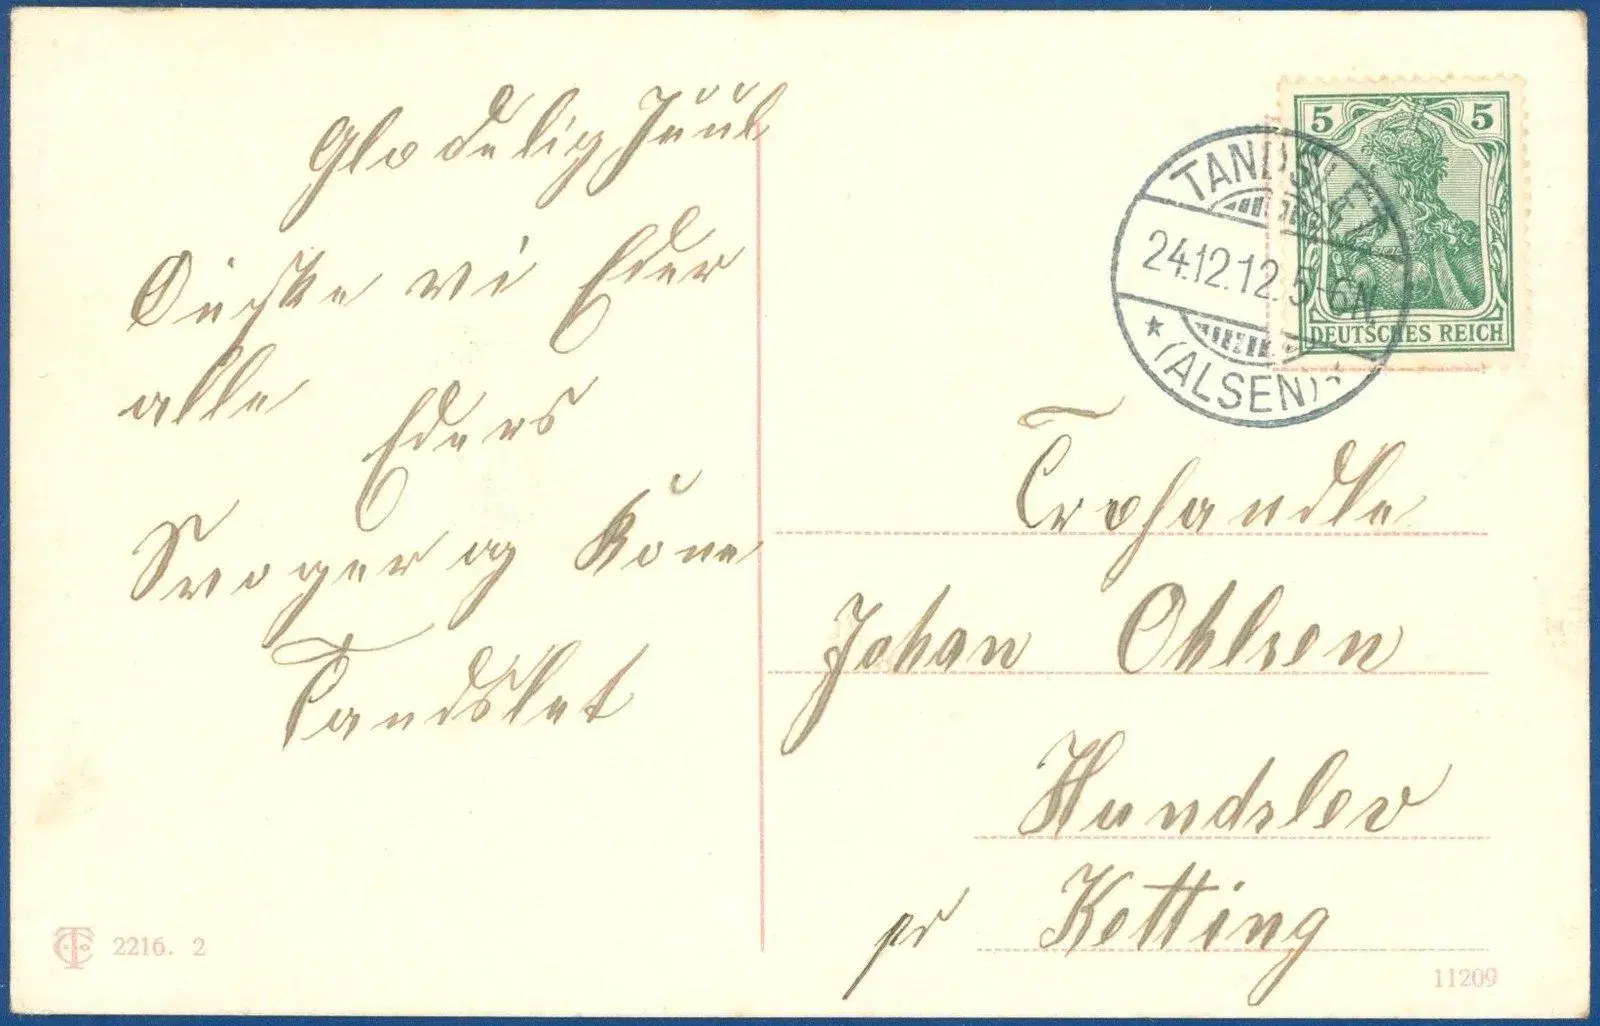 Glædelig Juul
Ønske vi Eder
alle Eders
Svoger og Kone
Tandslet
2216. 2
5 5
DEUTSCHES REICH
TANDSLET
24.12.12. 5-6N.
* (ALSEN) *
Johan Ohlsen
Hundslev
pr Ketting
11209